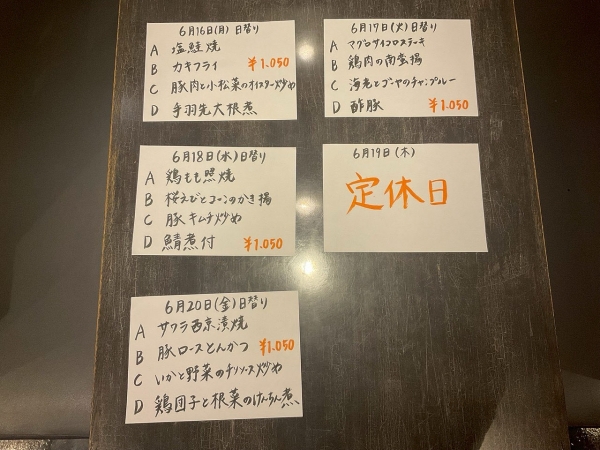 6月16日(月) 日替り
A 塩鮭焼
B カキフライ ¥1.050
C 豚肉と小松菜のオイスター炒め
D 手羽先大根煮
6月17日(火)日替り
A マグロサイコロステーキ
B 鶏肉の南蛮揚
C 海老とゴーヤのチャンプルー
D 酢豚 ¥1.050
6月18日(水)日替り
A 鶏もも照焼
B 桜えびとコーンのかき揚
C 豚キムチ炒め
D 鯖煮付 ¥1.050
6月19日(木)
定休日
6月20日(金)日替り
A サワラ西京漬焼
B 豚ロースとんかつ ¥1.050
C いかと野菜のチリソース炒め
D 鶏団子と根菜のけんちん煮